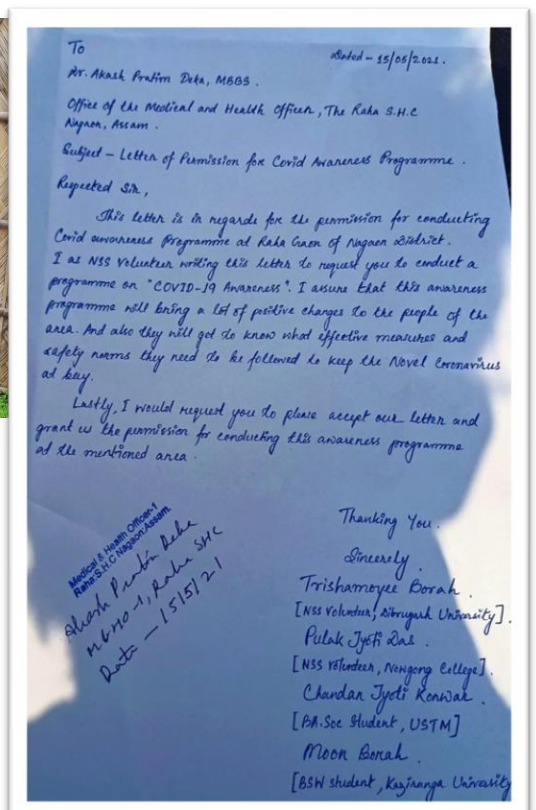 To
Dated - 15/05/2021.
Dr. Akash Pratim Deka, MBBS.
Office of the Medical and Health Officer, The Raha S.H.C
Nagaon, Assam.
Subject - Letter of Permission for Covid Awareness Programme.
Respected Sir,
This letter is in regards for the permission for conducting
Covid awareness Programme at Raha Gaon of Nagaon District.
I as NSS Volunteer writing this letter to request you to conduct a
programme on "COVID-19 Awareness". I assure that this awareness
programme will bring a lot of positive changes to the people of the
area. And also they will get to know what effective measures and
safety norms they need to be followed to keep the Novel Coronavirus
at bay.
Lastly, I would request you to please accept our letter and
grant us the permission for conducting this awareness programme
at the mentioned area.
Medical & Health Officer-1
Raha S.H.C Nagaon Assam
Akash Pratim Deka
M&HO-1, Raha SHC
Date - 15/5/21
Thanking You.
Sincerely
Trishamoyee Borah.
[NSS Volunteer, Dibrugarh University].
Pulak Jyoti Das.
[NSS Volunteer, Nowgong College].
Chandan Jyoti Konwar.
[BA.Soc Student, USTM]
Moon Borah.
[BSW student, Kaziranga University